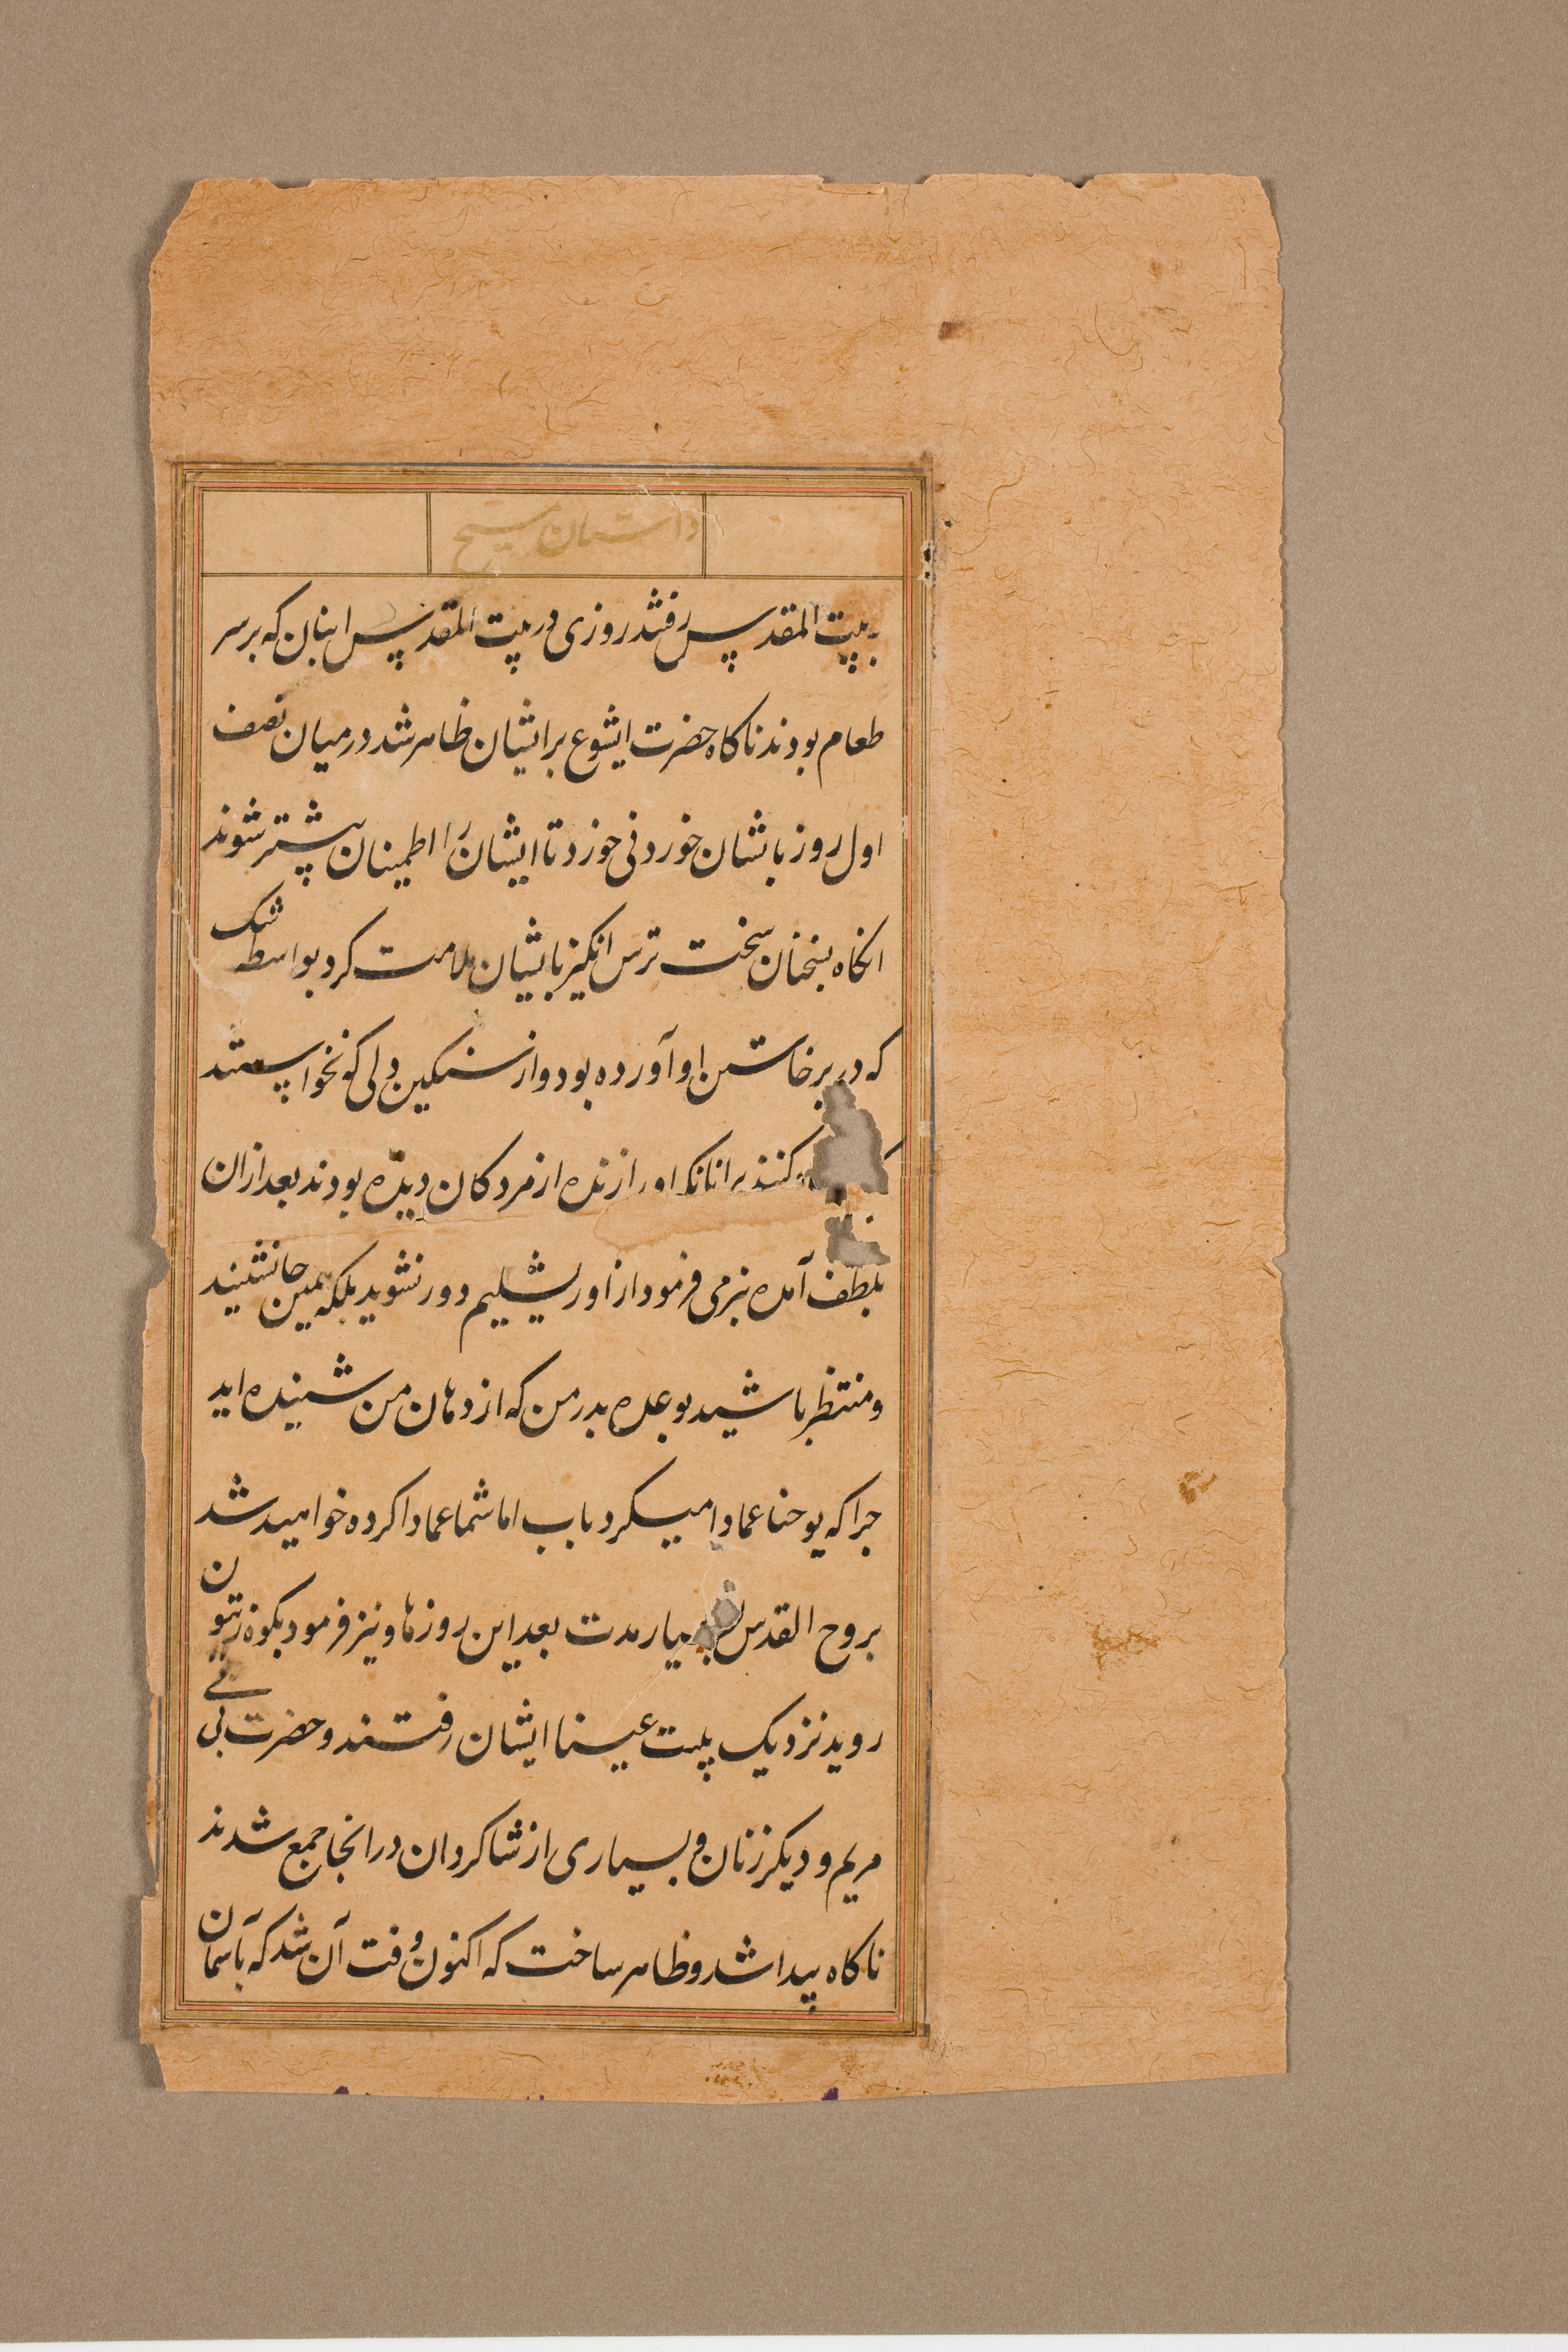 داستان مسیح
به بیت المقدس رفتند روزی در بیت المقدس اینان که بر سر
طعام بودند ناکاه حضرت ایشوع بر ایشان ظاهر شد در میان نصف
اول روز با یشان خوردنی خورد تا ایشان را اطمینان بیشتر شوند
انکاه بسخنان سخت ترس انکیز با یشان ملامت کرد بواسطه شک
که در برخاستن او آورده بود و از سنکین دلی که نخواستند
کنند بر انانکه او را زنده از مردکان دیده بودند بعد ازان
بلطف آمده بنرمی فرمود از اورشلیم دور نشوید بلکه همین جا نشینید
و منتظر باشید بوعده پدر من که از دهان من شنیده اید
چرا که یوحنا عماد میکرد باب اما شما عماد کرده خواهید شد
بروح القدس بعد این روزها و نیز فرمود بکوه زیتون
روید نزدیک بیت عینا ایشان رفتند و حضرت بی بی
مریم و دیکر زنان و بسیاری از شاکردان در انجا جمع شدند
ناکاه پیدا شد و ظاهر ساخت که اکنون وقت آن شد که بآسمان